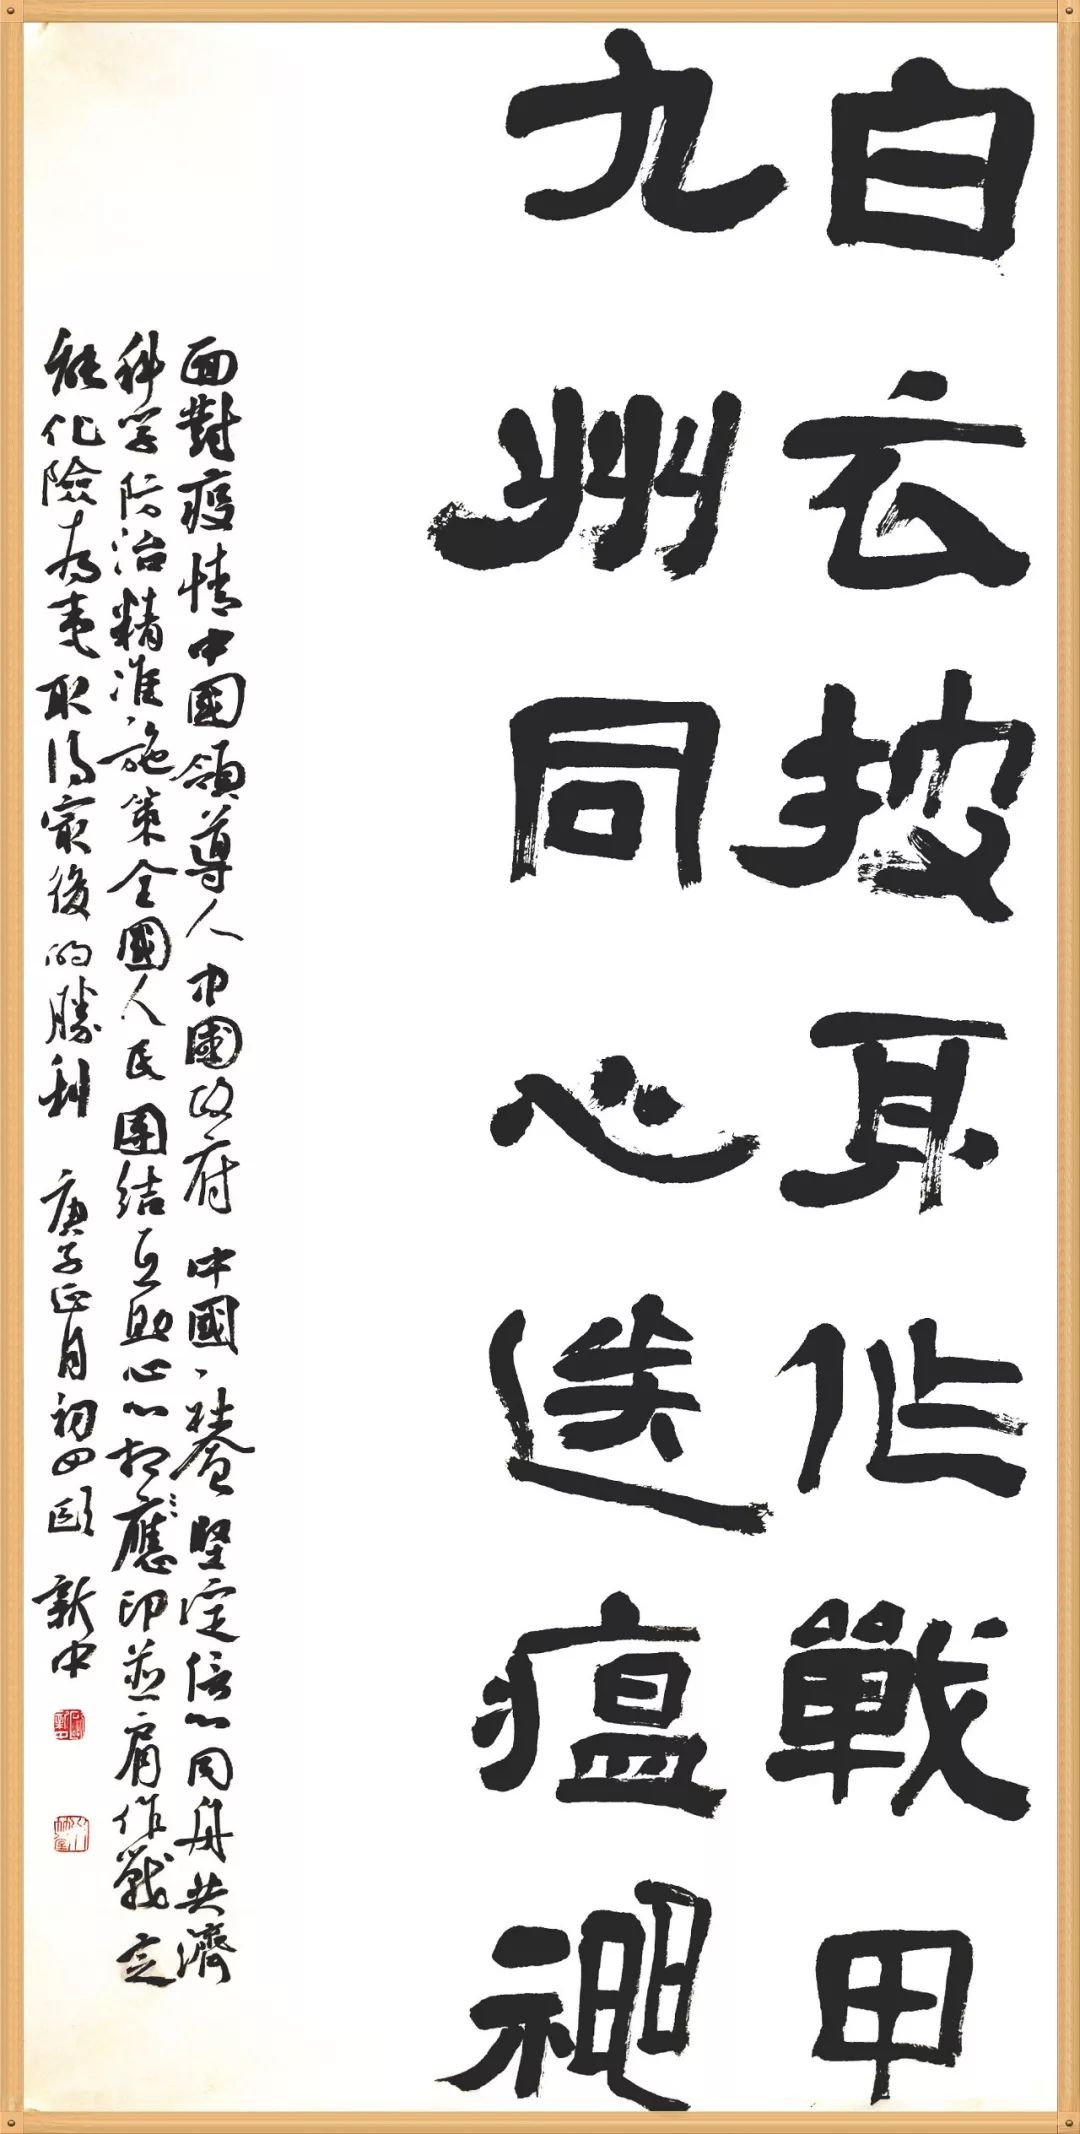 白衣披身作戰甲
九州同心送瘟神
面對疫情中國領導人中國政府 中國堅定信心同舟共濟
科学防治精准施策全國人民團结互助心心相應印並肩作戰定
能化險为夷取得最後的勝利 庚子正月初四 新中